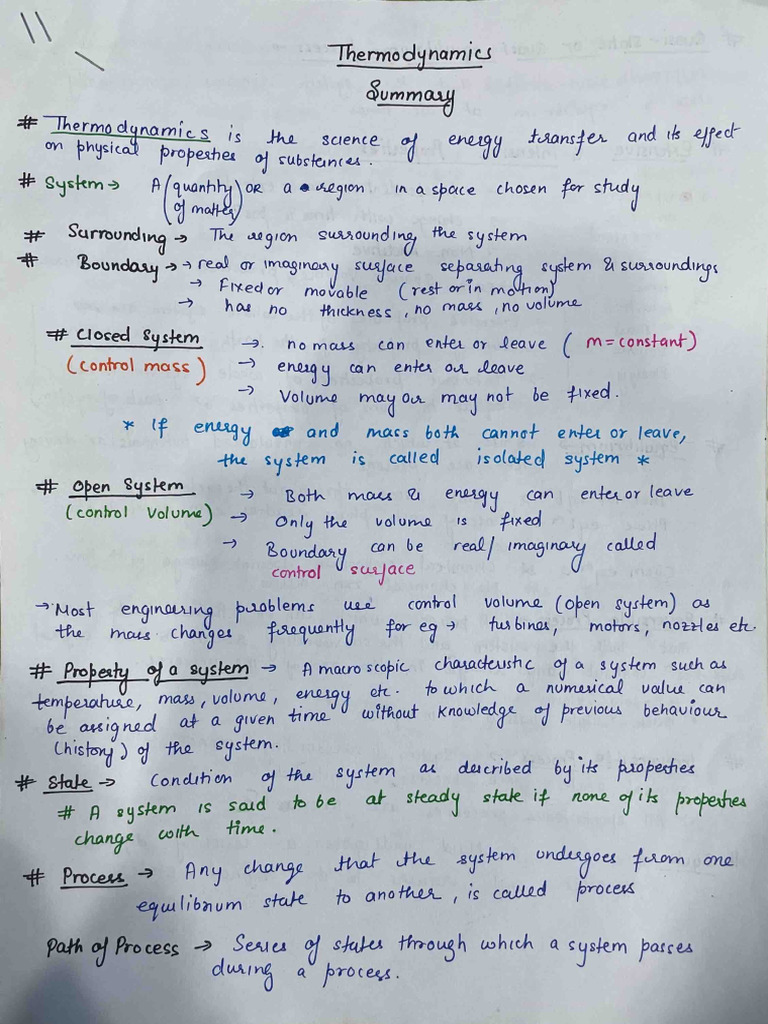 Thermodynamics
Summary
# Thermodynamics is the science of energy transfer and its effect
on physical properties of substances.
# System → A (quantity of matter) OR a region in a space chosen for study
# Surrounding → The region surrounding the system
# Boundary → → real or imaginary surface separating system & surroundings
→ Fixed or movable (rest or in motion)
→ has no thickness, no mass, no volume
# Closed System → no mass can enter or leave (m = constant)
(control mass) → energy can enter or leave
→ Volume may or may not be fixed.
* If energy and mass both cannot enter or leave,
the system is called isolated system *
# Open System → Both mass & energy can enter or leave
(control volume) → Only the volume is fixed
→ Boundary can be real/imaginary called
control surface
→ Most engineering problems use control volume (open system) as
the mass changes frequently for eg → turbines, motors, nozzles etc.
# Property of a system → A macroscopic characteristic of a system such as
temperature, mass, volume, energy etc. to which a numerical value can
be assigned at a given time without knowledge of previous behaviour
(history) of the system.
# State → Condition of the system as described by its properties
# A system is said to be at steady state if none of its properties
change with time.
# Process → Any change that the system undergoes from one
equilibrium state to another, is called process
Path of Process → Series of states through which a system passes
during a process.